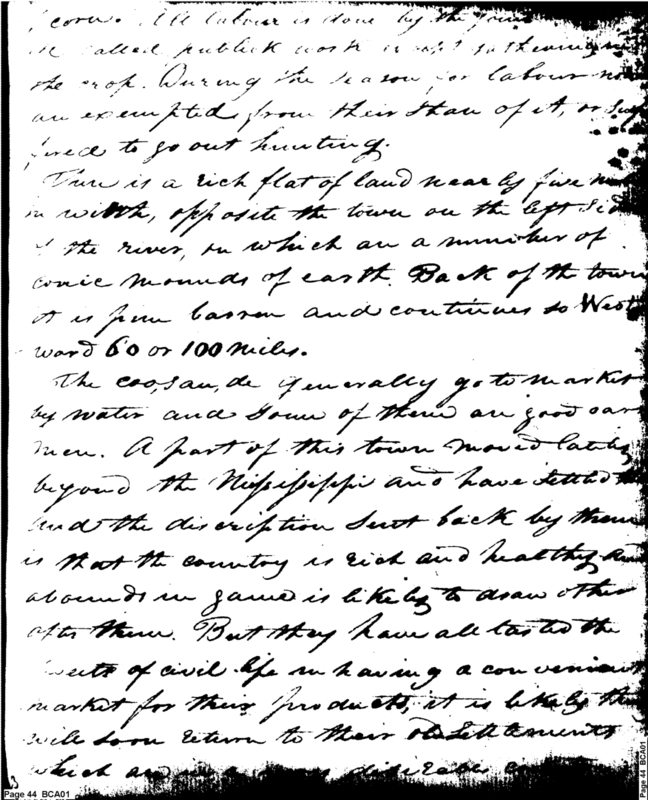 corn. All labour is done by the
called publick work
the crop. During the season for labour
an exempted from their share of it, or
fired to go out hunting.
There is a rich flat of land nearly five
in width, opposite the town on the left Sid
the river, on which are a number of
conic mounds of earth. Back of the town
it is pine barren and continues so West
ward 60 or 100 miles.
The coo,sau,de generally go to market
by water and some of them are good oars
men. A part of this town moved lately
beyond the Mississippi and have settled
and the discription Sent back by them
is that the country is rich and healthy and
abounds in game is likely to draw other
after them. But they have all tasted the
of civil life in having a convenient
market for their products, it is likely they
will soon return to their old Settlements
which are in a
Page 44 BCA01
Page 44 BCA01